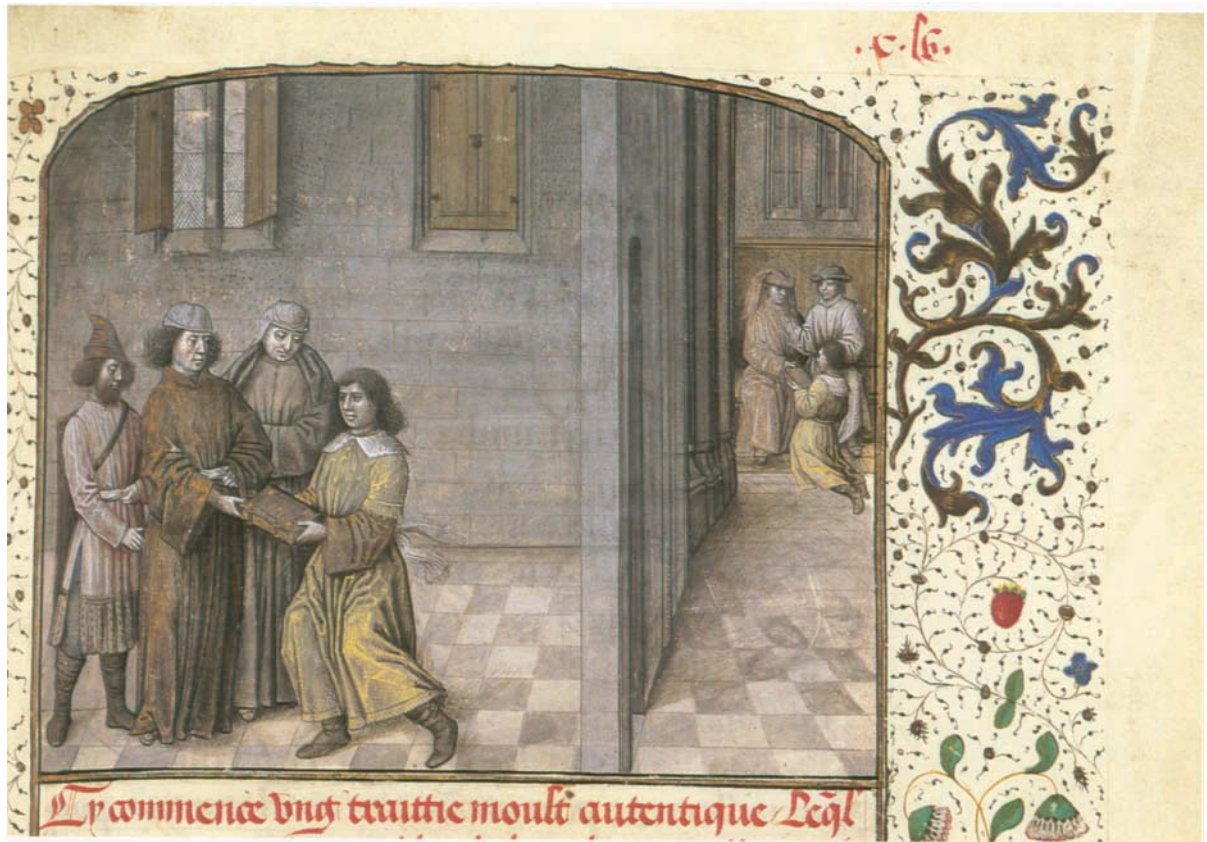 .c.lv.
Cy commence vng traittie moult autentique Leq̄l